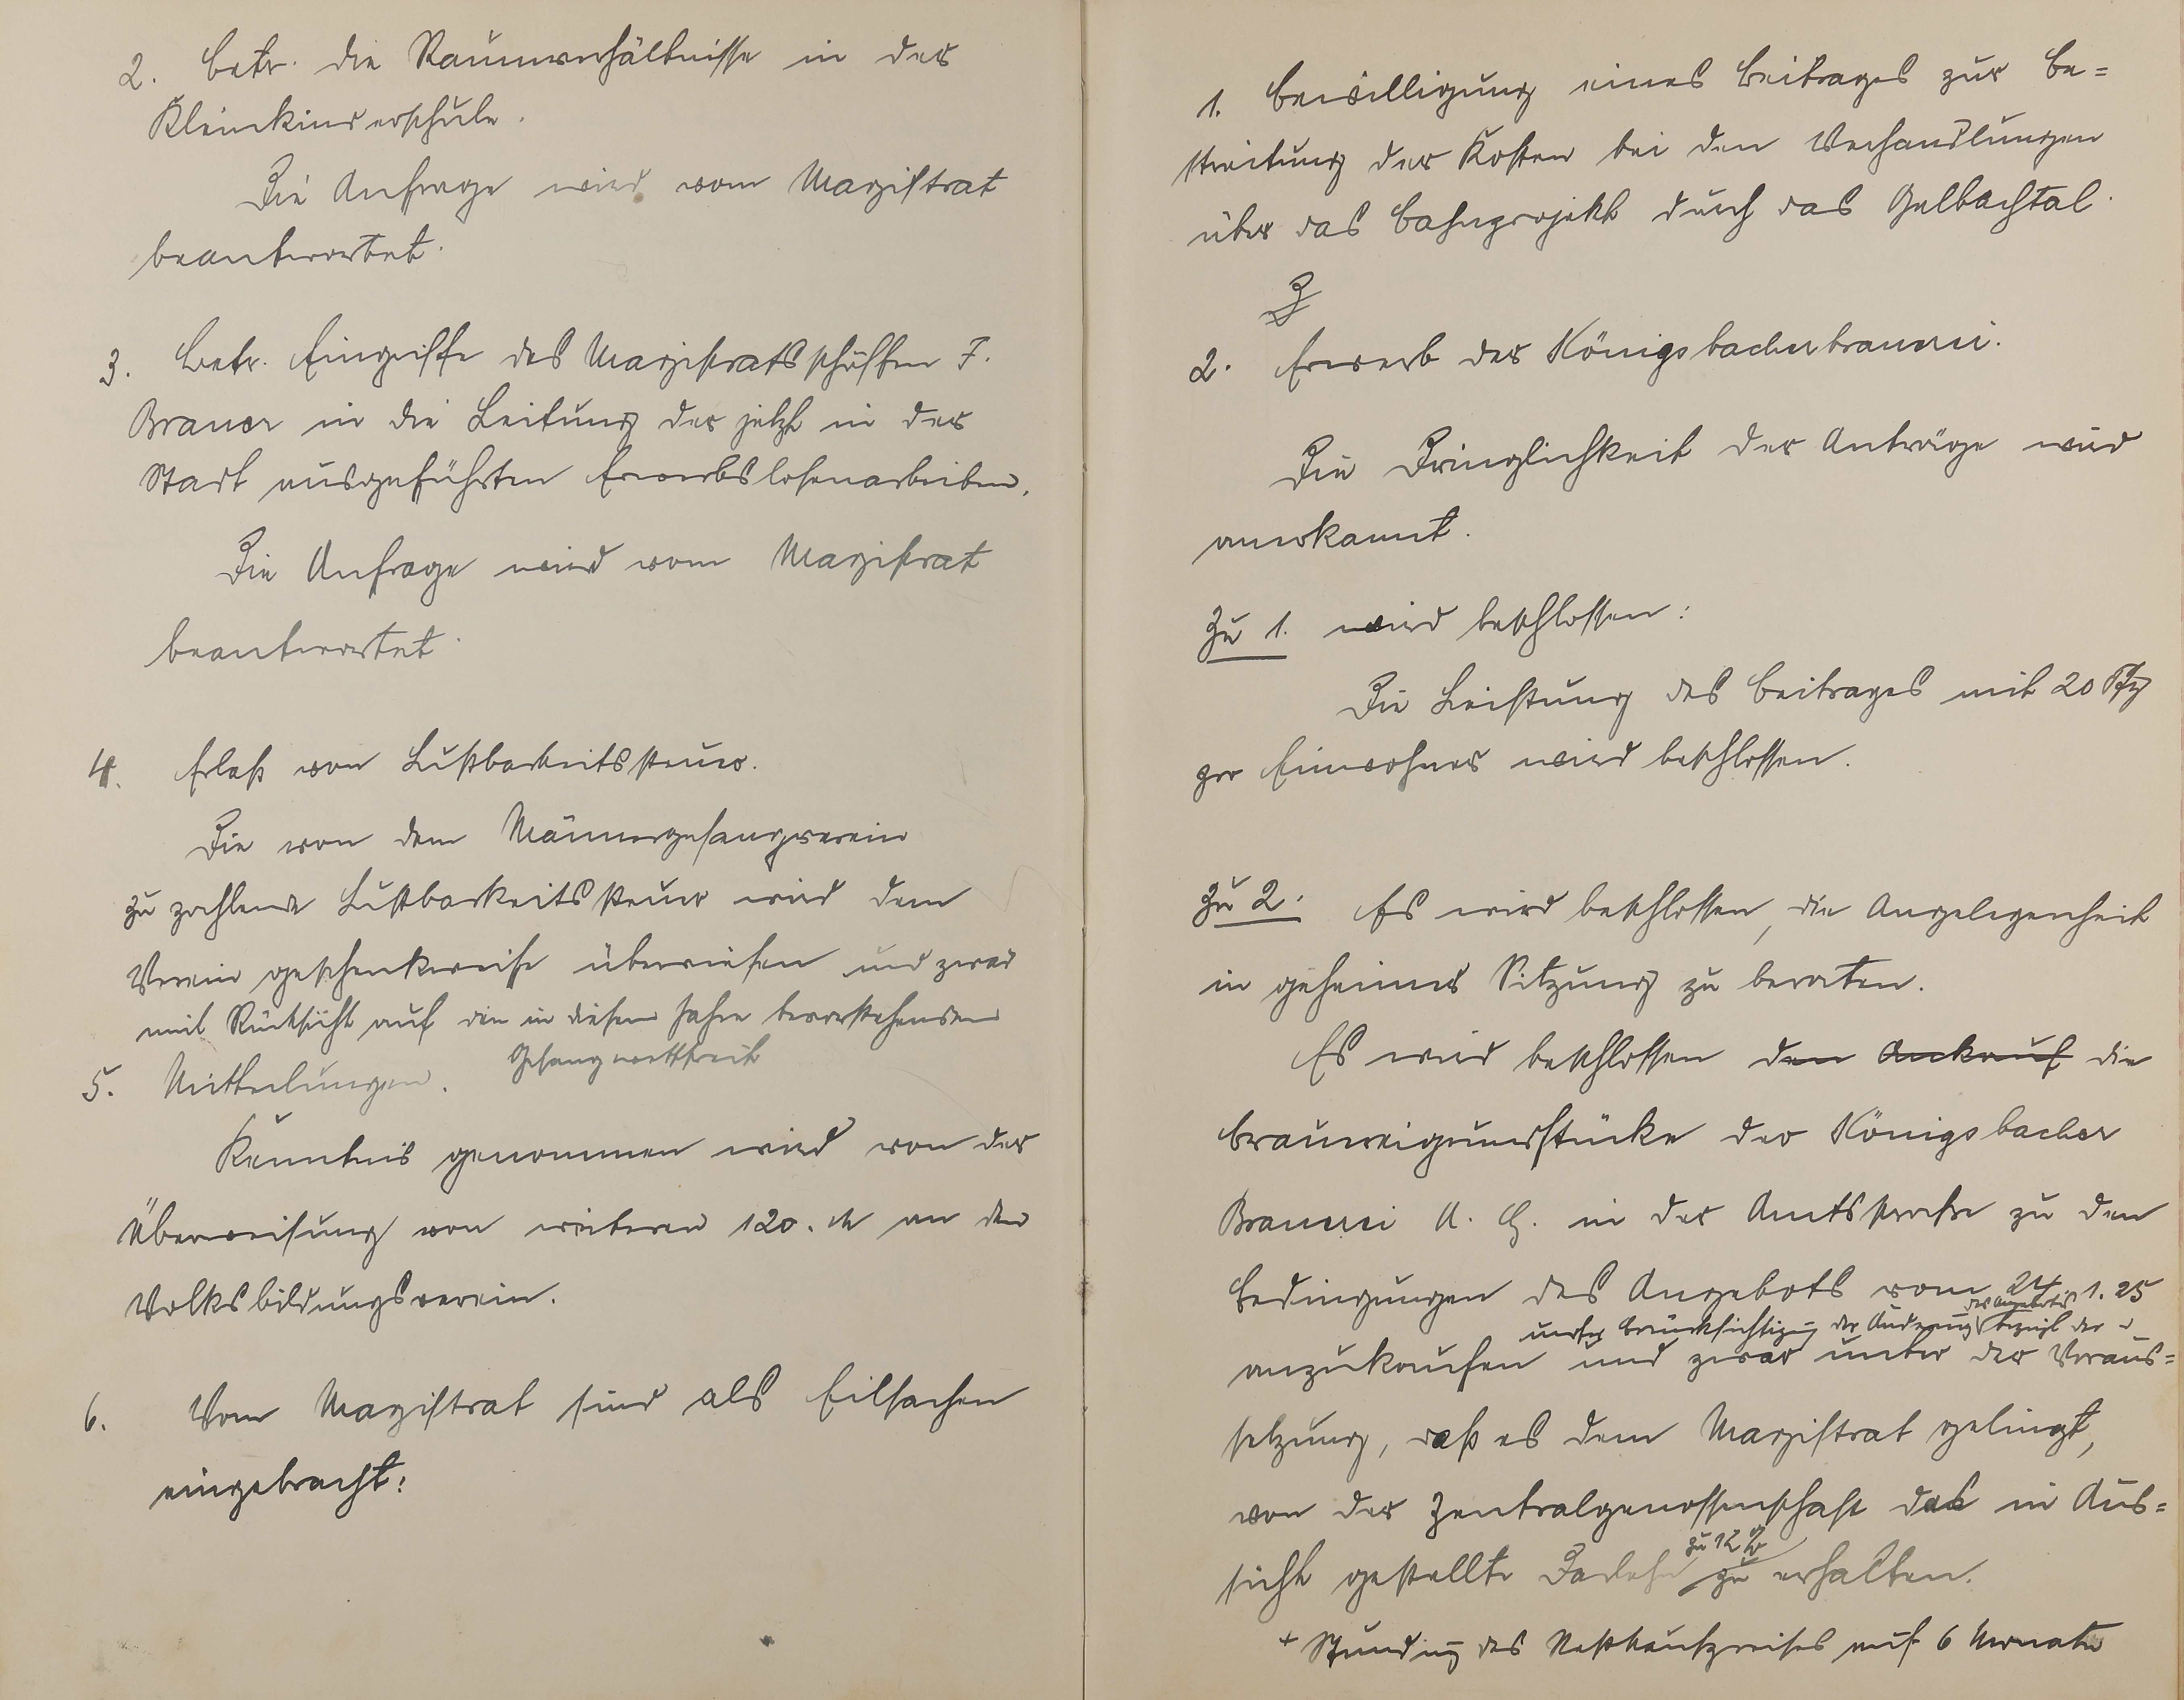 2. Betr. die Raumverhältnisse in der
Kleinkinderschule.
Die Anfrage wird vom Magistrat
beantwortet.
3. Betr. Eingriffe des Magistratsschöffen F.
Brauer in die Leitung der jetzt in der
Stadt ausgeführten Erwerbslosenarbeiten.
Die Anfrage wird vom Magistrat
beantwortet.
4. Erlaß von Lustbarkeitssteuer.
Die von dem Männergesangverein
zu zahlende Lustbarkeitssteuer wird dem
Verein geschenkweise überwiesen und zwar
mit Rücksicht auf den in diesem Jahre bevorstehenden
Gesangwettstreit
5. Mitteilungen.
Kenntnis genommen wird von der
Überweisung von weiteren 120. M an den
Volksbildungsverein.
6. Vom Magistrat sind als Eilsachen
eingebracht:
1. Bewilligung eines Beitrages zur Be=
streitung der Kosten bei den Verhandlungen
über das Bahnprojekt durch das Gelbachtal.
2. Erwerb der Königsbacherbrauerei.
Die Dringlichkeit der Anträge wird
anerkannt.
Zu 1. wird beschlossen:
Die Leistung des Beitrages mit 20 Pfg
pro Einwohner wird beschlossen.
Zu 2. Es wird beschlossen, die Angelegenheit
in geheimer Sitzung zu beraten.
Es wird beschlossen den Ankauf die
Brauereigrundstücke der Königsbacher
Brauerei A. G. in der Amtsstraße zu den
Bedingungen des Angebots vom 24. 1. 25
unter Berücksichtigung der Änderung des Angebotes bezügl. der
anzukaufen und zwar unter der Voraus=
setzung, daß es dem Magistrat gelingt,
von der Zentralgenossenschaft das in Aus=
sicht gestellte Darlehn zu 12 % zu erhalten.
+ Stundung des Restkaufpreises auf 6 Monate